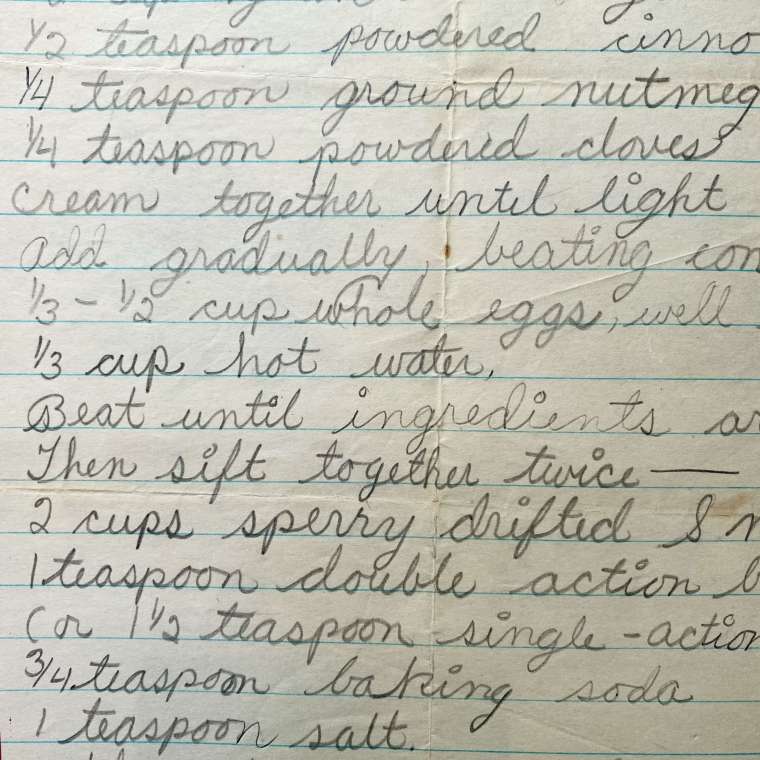 1/2 teaspoon powdered cinno
1/4 teaspoon ground nutmeg
1/4 teaspoon powdered cloves
Cream together until light
add gradually, beating con
1/3 - 1/2 cup whole eggs, well
1/3 cup hot water,
Beat until ingredients ar
Then sift together twice —
2 cups sperry drifted S
1 teaspoon double action b
(or 1 1/2 teaspoon single-action
3/4 teaspoon baking soda
1 teaspoon salt.